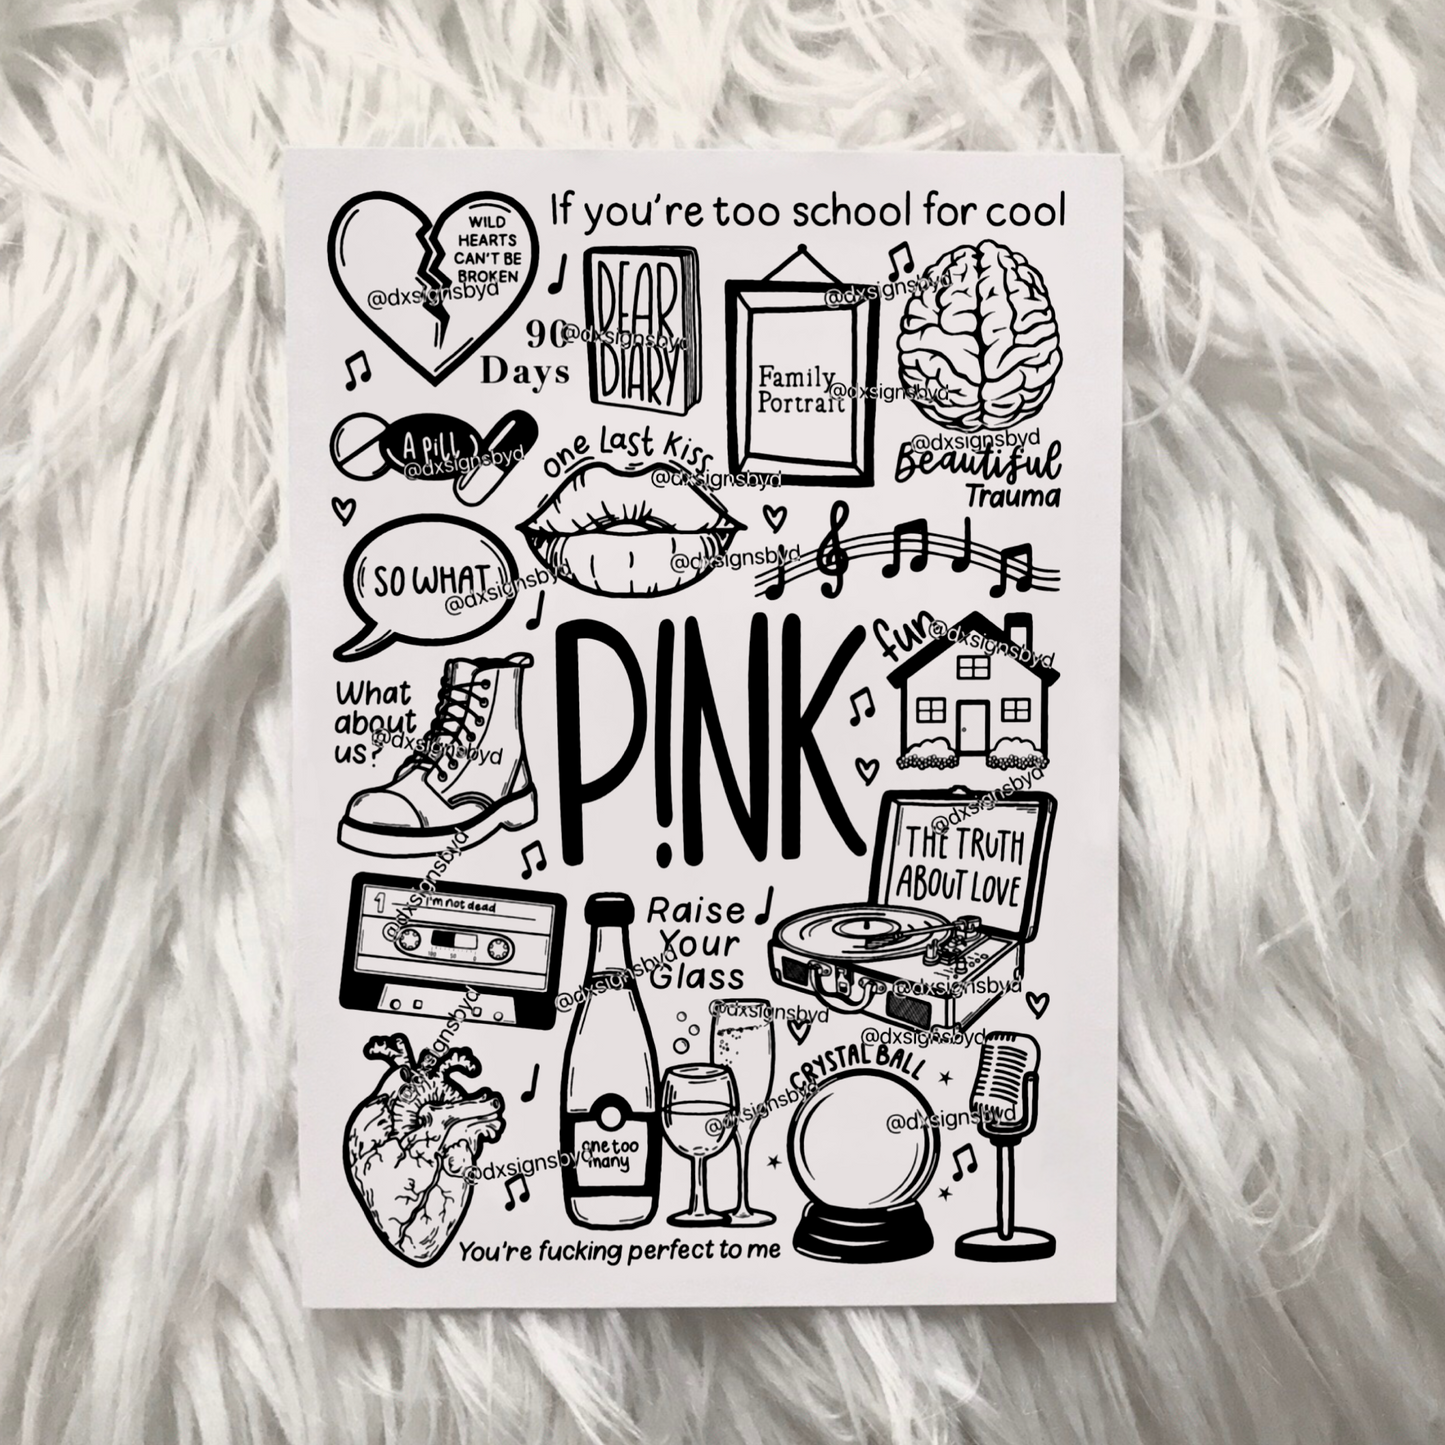 If you're too school for cool
WILD
HEARTS
CAN'T BE
BROKEN
@dxsignsbyd
90
Days
@dxsignsbyd
DEAR
DIARY
@dxsignsbyd
Family
Portrait
@dxsignsbyd
@dxsignsbyd
Beautiful
Trauma
A pill
@dxsignsbyd
one Last Kiss
@dxsignsbyd
@dxsignsbyd
SO WHAT
@dxsignsbyd
P!NK
fun
@dxsignsbyd
What
about
us?
@dxsignsbyd
@dxsignsbyd
THE TRUTH
ABOUT LOVE
@dxsignsbyd
@dxsignsbyd
1
I'm not dead
100 50 0
Raise
Your
Glass
@dxsignsbyd
@dxsignsbyd
@dxsignsbyd
@dxsignsbyd
CRYSTAL BALL
@dxsignsbyd
@dxsignsbyd
one too
many
@dxsignsbyd
You're fucking perfect to me